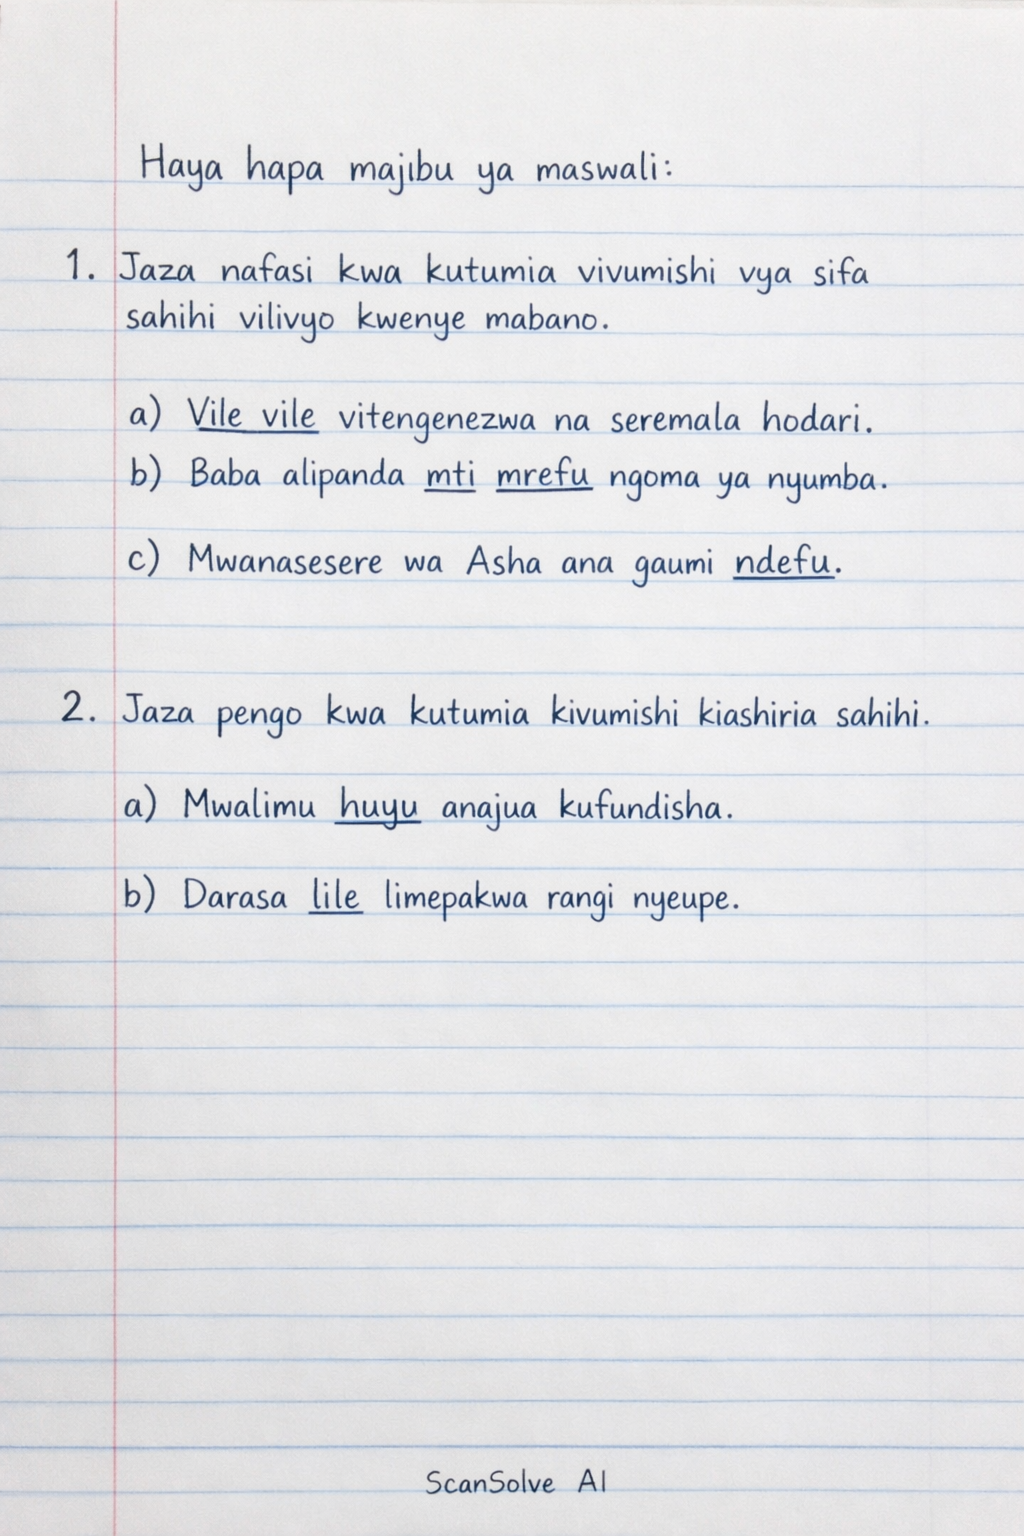 Haya hapa majibu ya maswali:
1. Jaza nafasi kwa kutumia vivumishi vya sifa
sahihi vilivyo kwenye mabano.
a) Vile vile vitengenezwa na seremala hodari.
b) Baba alipanda mti mrefu ngoma ya nyumba.
c) Mwanasesere wa Asha ana gaumi ndefu.
2. Jaza pengo kwa kutumia kivumishi kiashiria sahihi.
a) Mwalimu huyu anajua kufundisha.
b) Darasa lile limepakwa rangi nyeupe.
ScanSolve AI